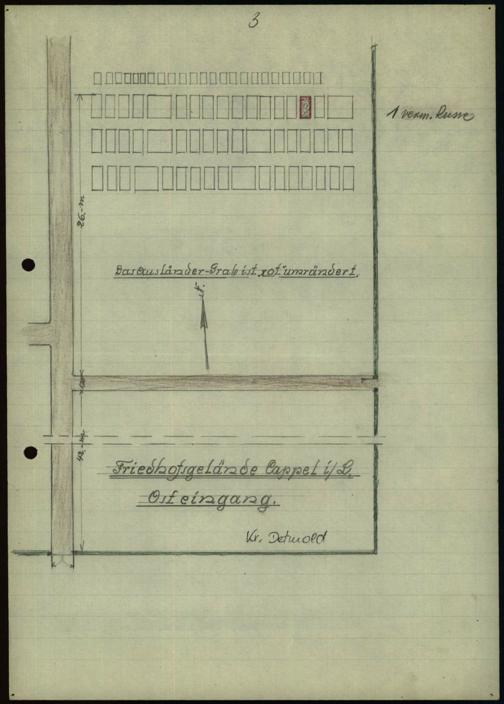 3
1 verm. Russe
26,-m
Das Ausländer-Grab ist "rot" umrändert.
N.
Friedhofsgelände Cappel i/L.
Osteingang.
Kr. Detmold